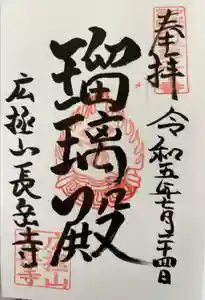 奉拝
令和五年七月二十四日
瑠璃殿
広極山長岳寺